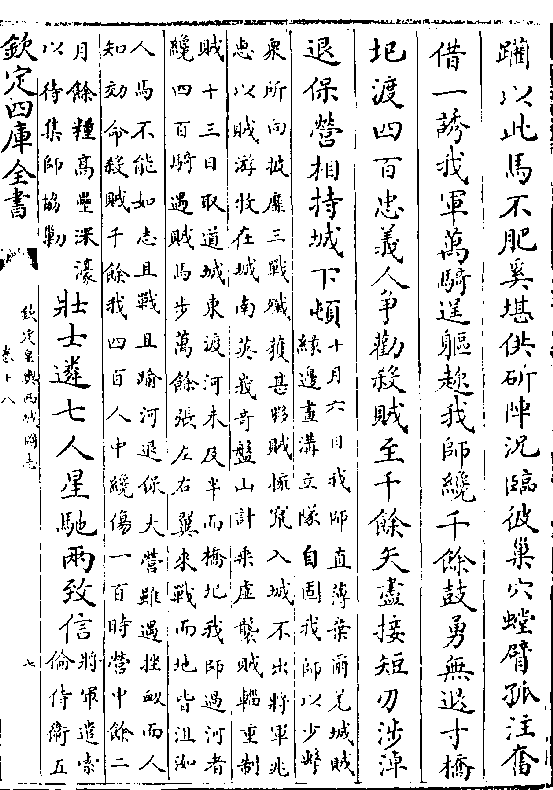 躪以此馬不肥奚堪供斫陣況臨彼巢穴螳臂孤注奮
借一誘我軍萬騎逞軀趂我師纔千餘鼓勇無退寸橋
圯渡四百忠義人爭勸殺賊至千餘矢盡接短刃涉淖
退保營相持城下頓十月六日我師直薄葉爾羌城賊
緣邊畫溝立隊自固我師以少擊
衆所向披靡三戰殲獲甚夥賊懷竄入城不出將軍兆
惠以賊游牧在城南英峩奇盤山計乘虛襲賊輜重制
賊十三日取道城東渡河未及半而橋圯我師過河者
纔四百騎遇賊馬步萬餘張左右翼來戰而地皆沮洳
人馬不能如志且戰且踰河退保大營雖遇挫衂而人
知効命殺賊千餘我四百人中纔傷一百時營中餘二
月餘糧高壘深濠
以待集師協勦
壯士遴七人星馳兩致信將軍遣索
倫侍衛五
欽定四庫全書
欽定皇輿西域圖志
卷十八
七